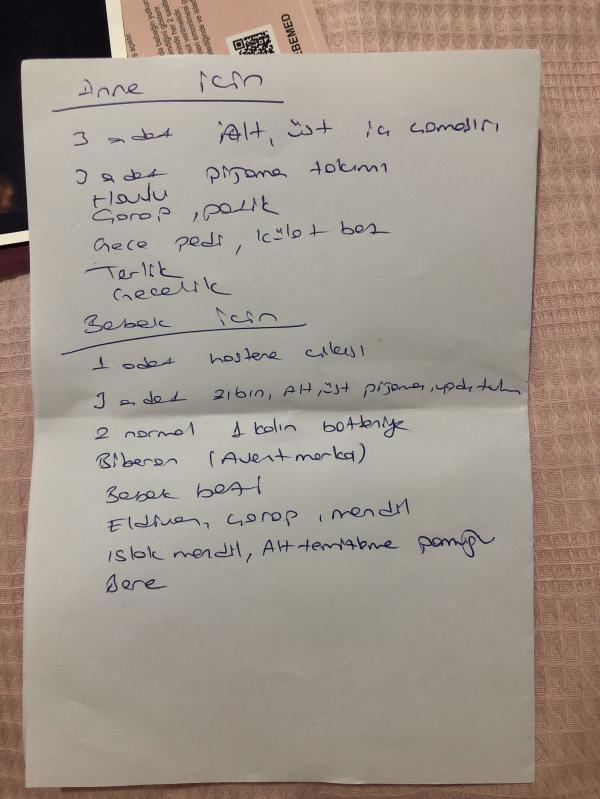 EBEMED
Anne için
3 adet Alt, üst iç çamaşırı
3 adet pijama takımı
Havlu
Çorap, patik
Gece pedi, külot bez
Terlik
Gecelik
Bebek için
1 adet hastene çıkışı
3 adet zıbın, Alt, üst pijama,
2 normal 1 kalın battaniye
Biberon (Avent marka)
Bebek bezi
Eldiven, çorap, mendil
ıslak mendil, Alt temizleme pamuğu
Bere